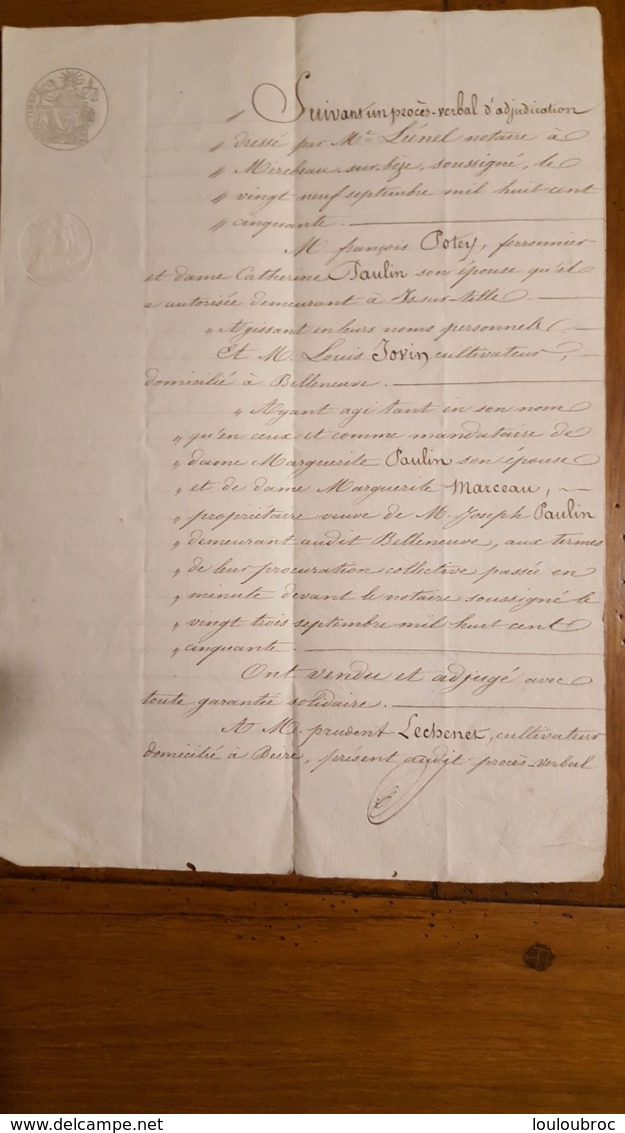 " Suivant un procès-verbal d'adjudication
" dressé par Me. Liénel notaire à
" Mirebeau-sur-bèze, soussigné, le
" vingt neuf septembre mil huit cent
" cinquante.
M. françois Potey, ferronnier
et dame Catherine Paulin son épouse qu'il
a autorisée demeurant à Is-sur-tille.
" Agissant en leurs noms personnels
Et M. Louis Jovin cultivateur,
domicilié à Belleneuve.
" Ayant agi tant en son nom
" qu'en ceux et comme mandataire de
" dame Marguerite Paulin son épouse
" et de dame Marguerite Marceau,
" propriétaire veuve de M. Joseph Paulin
" demeurant audit Belleneuve, aux termes
" de leur procuration collective passée en
" minute devant le notaire soussigné le
" vingt trois septembre mil huit cent
" cinquante.
Ont vendu et adjugé avec
toute garantie solidaire.
A M. prudent Lechenet, cultivateur
domicilié à Beire, présent audit procès-verbal
delcampe.net
louloubroc